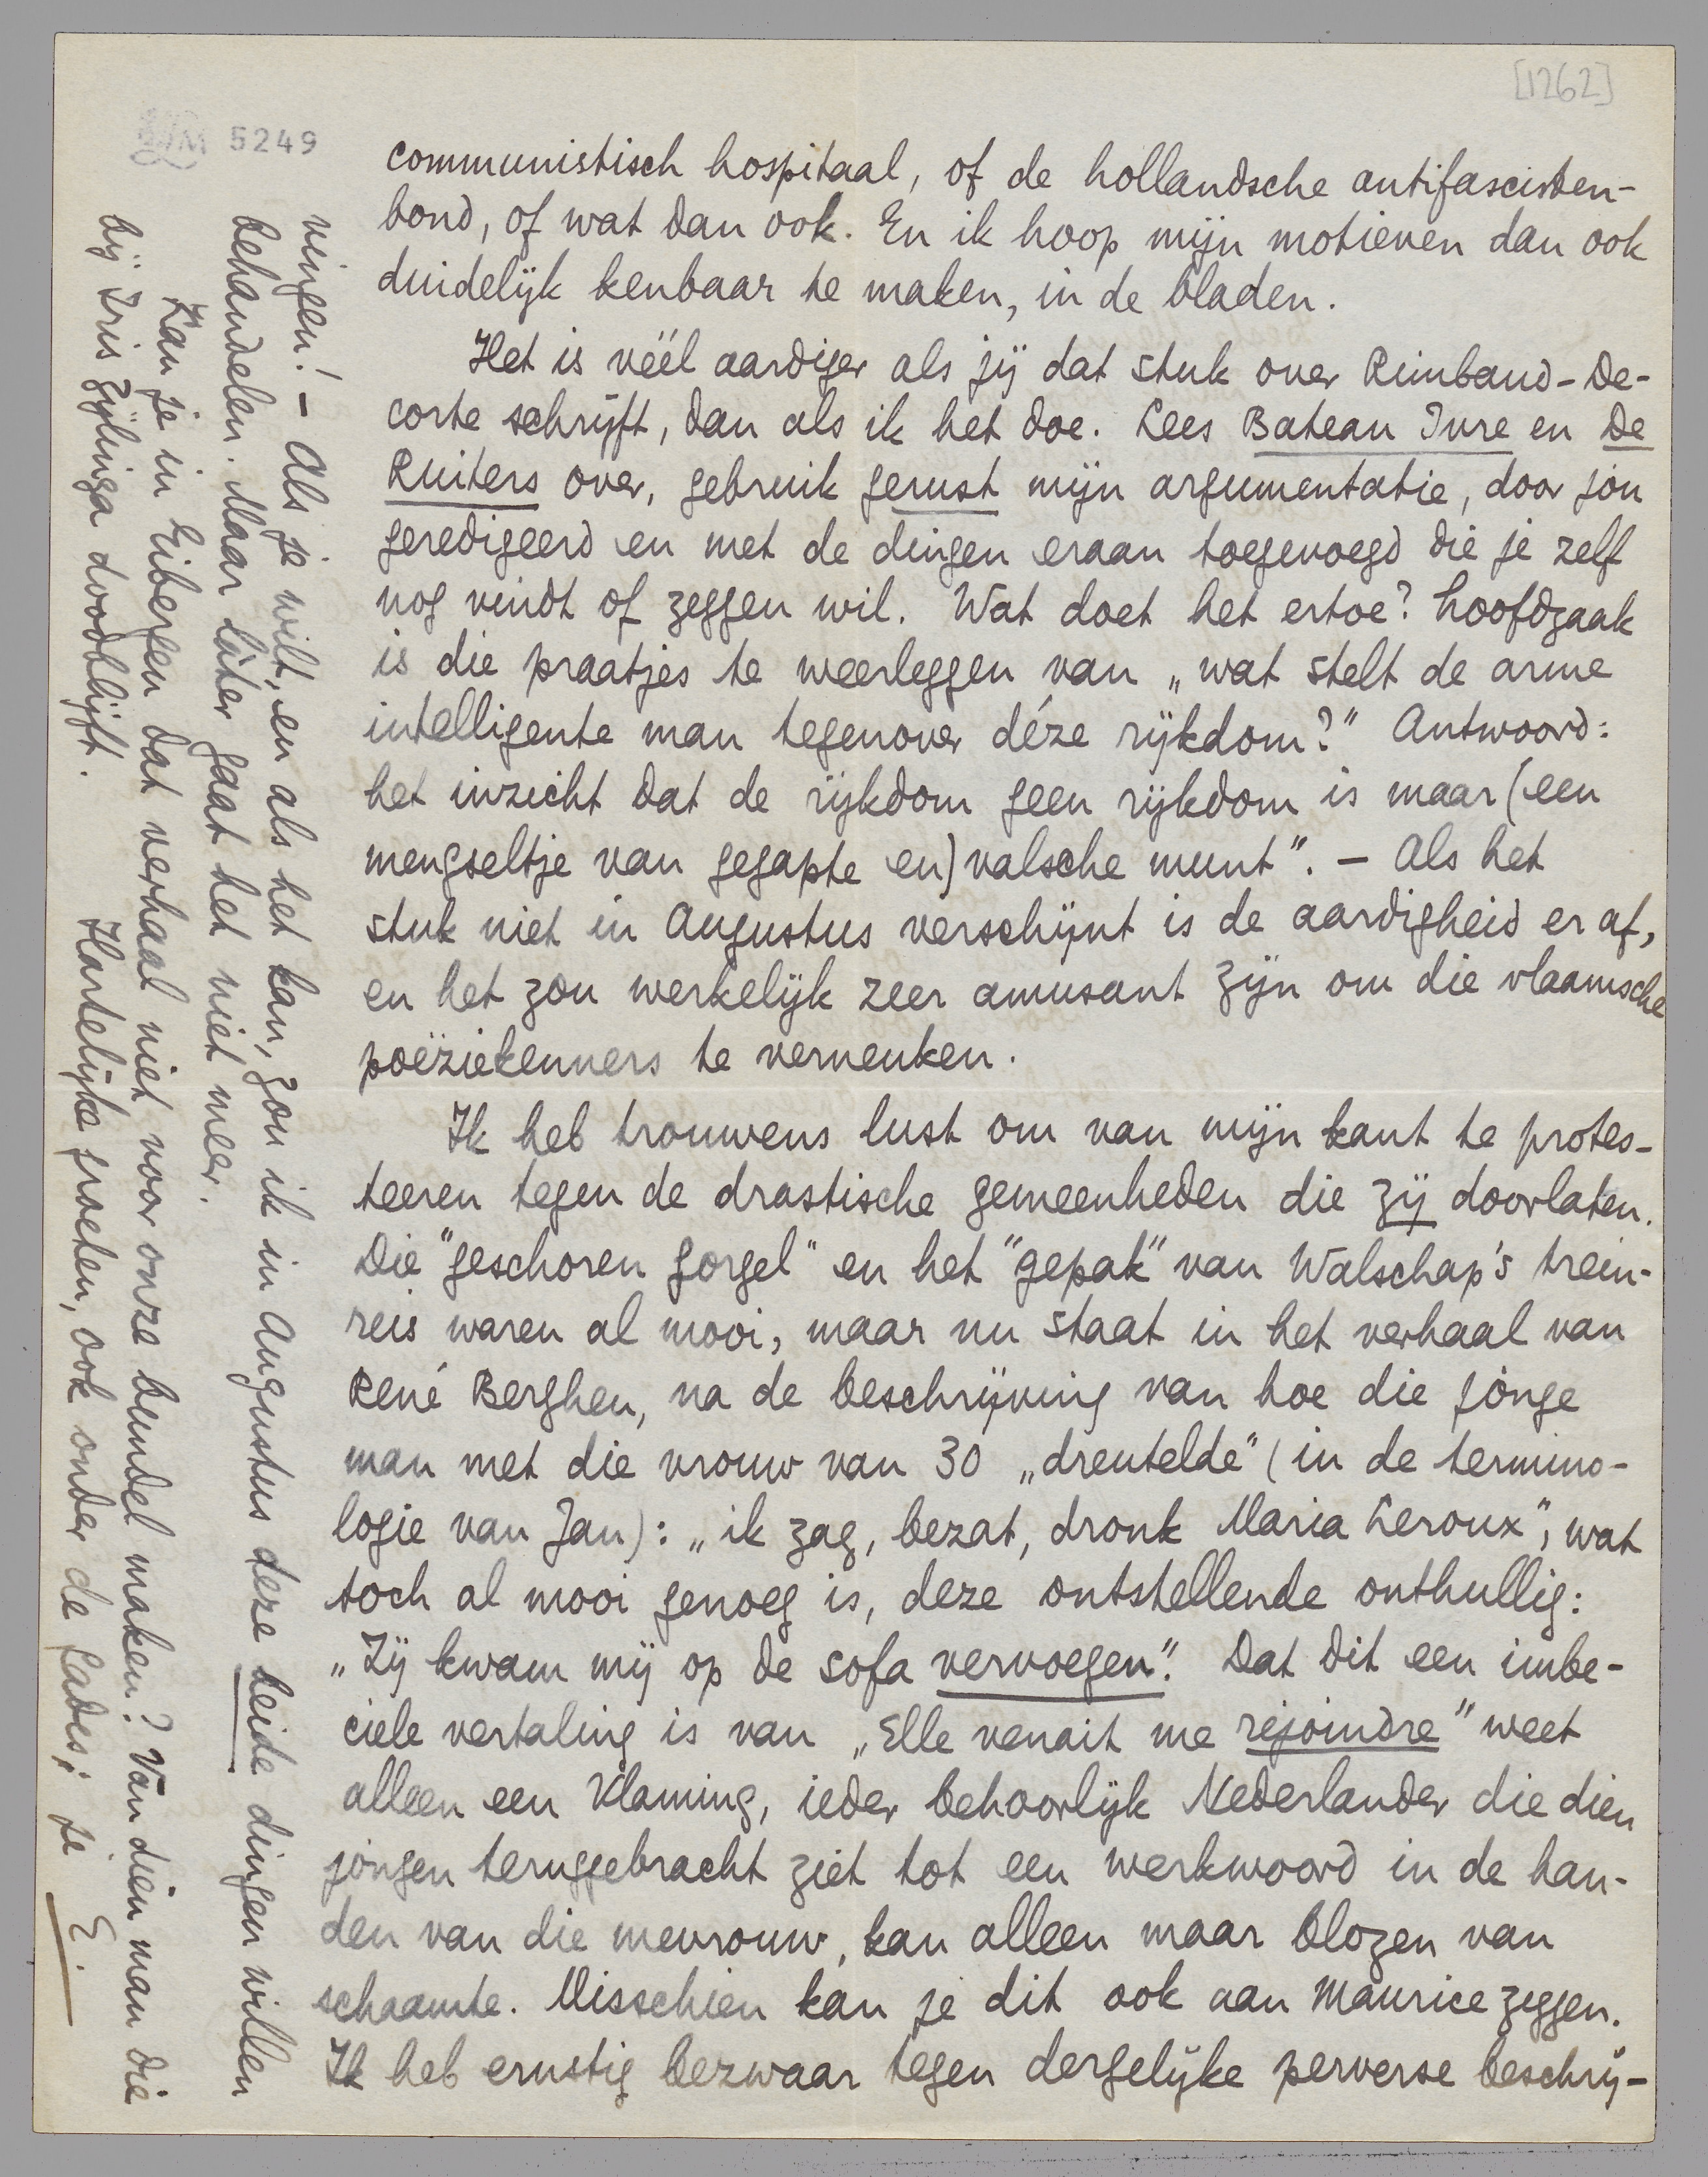 [1262]
LM 5249
communistisch hospitaal, of de hollandsche antifascisten-
bond, of wat dan ook. En ik hoop mijn motieven dan ook
duidelijk kenbaar te maken, in de bladen.
Het is véél aardiger als jij dat stuk over Rimbaud-De-
corte schrijft, dan als ik het doe. Lees Bateau Ivre en De
Ruiters over, gebruik gerust mijn argumentatie, door jou
geredigeerd en met de dingen eraan toegevoegd die je zelf
nog vindt of zeggen wil. Wat doet het ertoe? Hoofdzaak
is die praatjes te weerleggen van „wat stelt de arme
intelligente man tegenover déze rijkdom?" Antwoord:
het inzicht dat de rijkdom geen rijkdom is maar (een
mengseltje van gegapte en) valsche munt". – Als het
stuk niet in Augustus verschijnt is de aardigheid er af,
en het zou werkelijk zeer amusant zijn om die vlaamsche
poëziekenners te verneuken.
Ik heb trouwens lust om van mijn kant te protes-
teeren tegen de drastische gemeenheden die zij doorlaten.
Die "geschoren gorgel" en het "gepak" van Walschap's trein-
reis waren al mooi, maar nu staat in het verhaal van
René Berghen, na de beschrijving van hoe die jonge
man met die vrouw van 30 „dreutelde" (in de termino-
logie van Jan): „ik zag, bezat, dronk Maria Leroux", wat
toch al mooi genoeg is, deze ontstellende onthullig:
„Zij kwam mij op de sofa vervoegen". Dat dit een imbe-
ciele vertaling is van „Elle venait me rejoindre" weet
alleen een Vlaming, ieder behoorlijk Nederlander die dien
jongen teruggebracht ziet tot een werkwoord in de han-
den van die mevrouw, kan alleen maar blozen van
schaamte. Misschien kan je dit ook aan Maurice zeggen.
Ik heb ernstig bezwaar tegen dergelijke perverse beschrij-
vingen! – Als je wilt, en als het kan, zou ik in Augustus deze beide dingen willen
behandelen. Maar láter gaat het niet meer.
Kan je in Eibergen dat verhaal niet voor onze bundel maken? Van dien man die
bij Iris Zijlinga doodblijft.
Hartelijke groeten, ook onder de Gades; je E.